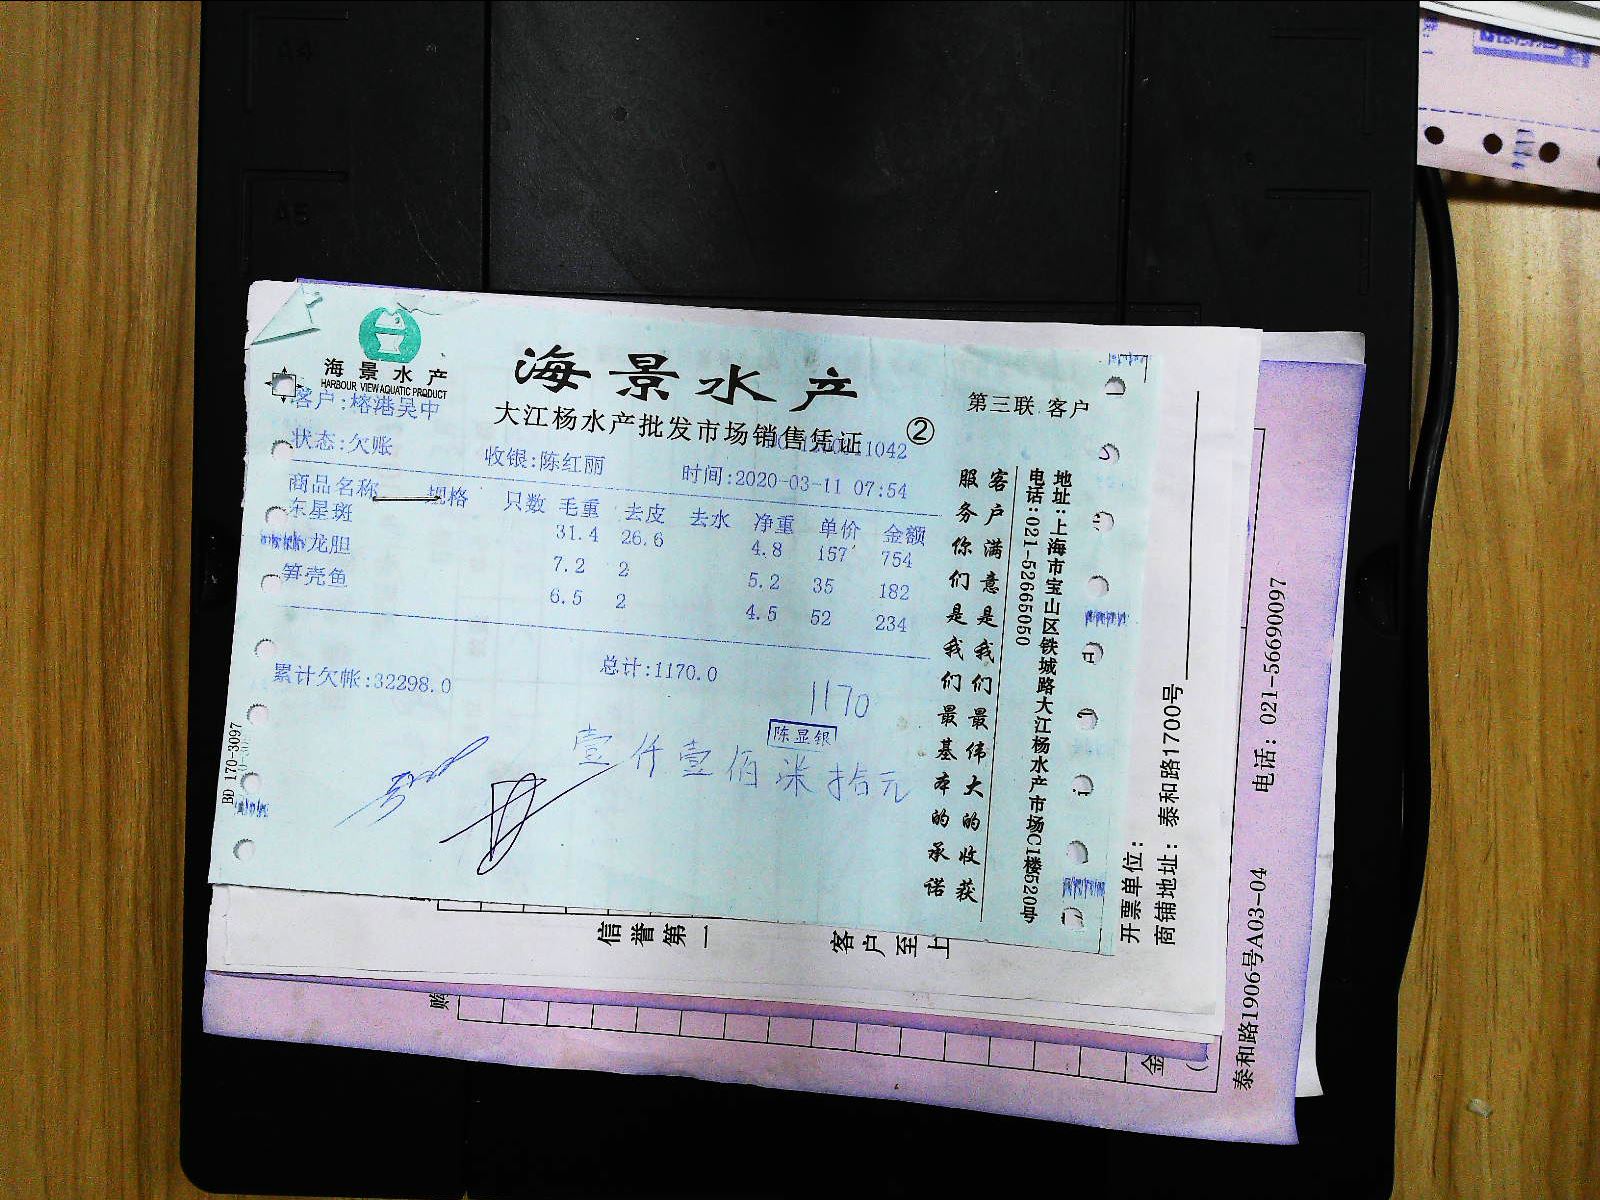 海景水产
HARBOUR VIEW AQUATIC PRODUCT
海景水产
大江杨水产批发市场销售凭证
②
第三联 客户
客户:榕港吴中
状态:欠账
收银:陈红丽
时间:2020-03-11 07:54
商品名称 规格 只数 毛重 去皮 去水 净重 单价 金额
东星斑 31.4 26.6 4.8 157 754
龙胆 7.2 2 5.2 35 182
笋壳鱼 6.5 2 4.5 52 234
累计欠帐:32298.0
总计:1170.0
1170
陈显银
壹仟壹佰柒拾元
BD 170-3097
客户满意是我们最伟大的收获
服务你们是我们最基本的承诺
地址:上海市宝山区铁城路大江杨水产市场C1楼520号
电话:021-52665050
开票单位:
商铺地址: 泰和路1700号
信誉第一
客户至上
泰和路1906号A03-04
电话: 021-56690097
购
金
A4
A5